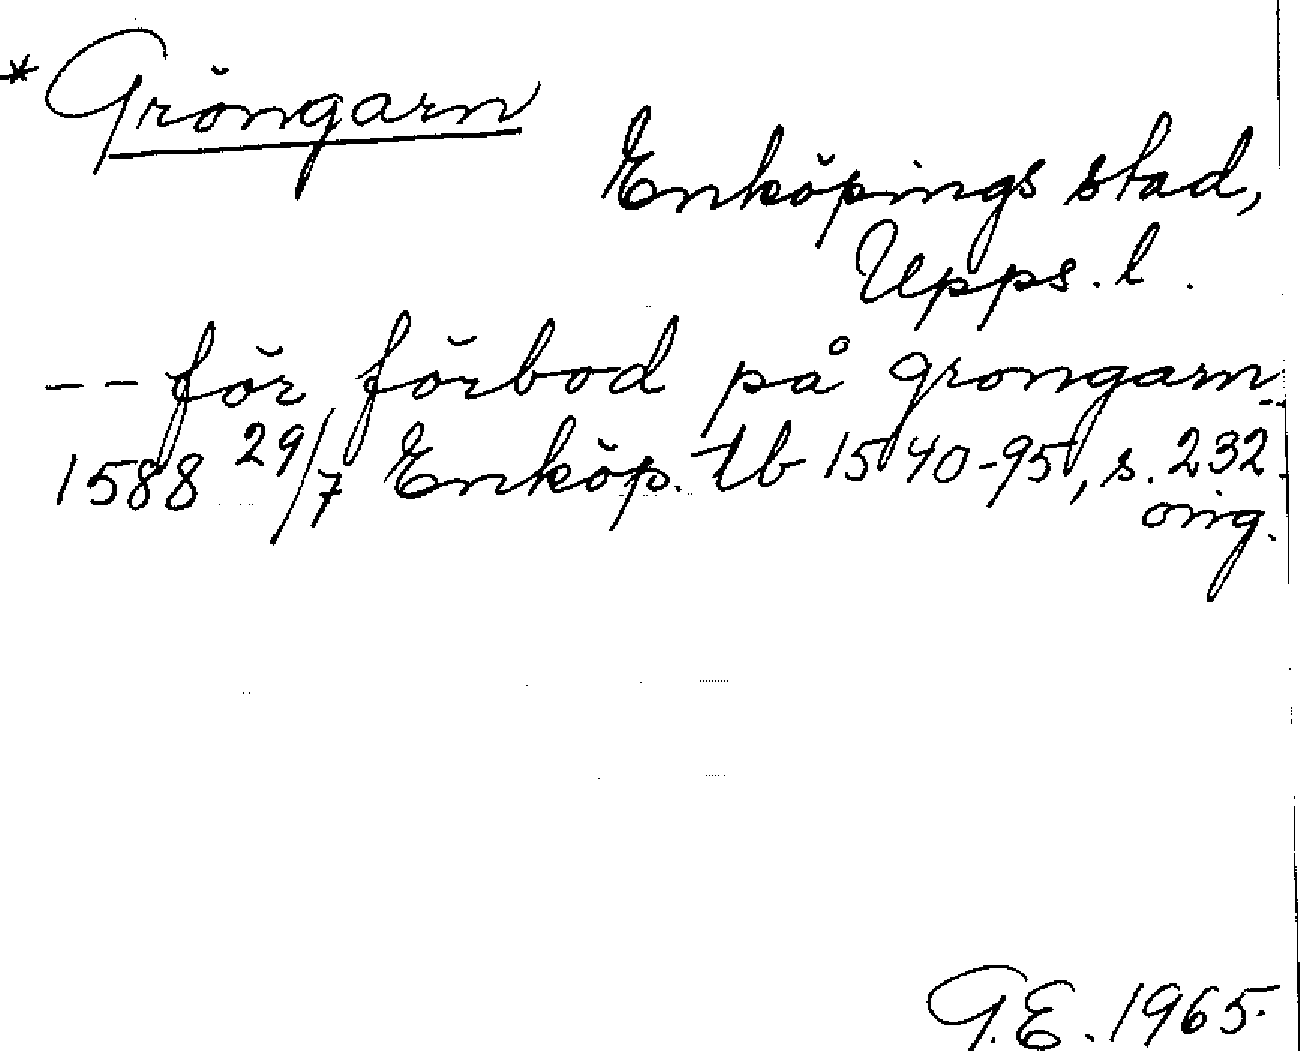 * Gröngarn
Enköpings stad,
Upps. l.
-- för förbod på grongarn --
1588 29/7 Enköp. tb 1540-95, s. 232.
orig.
G.E. 1965.